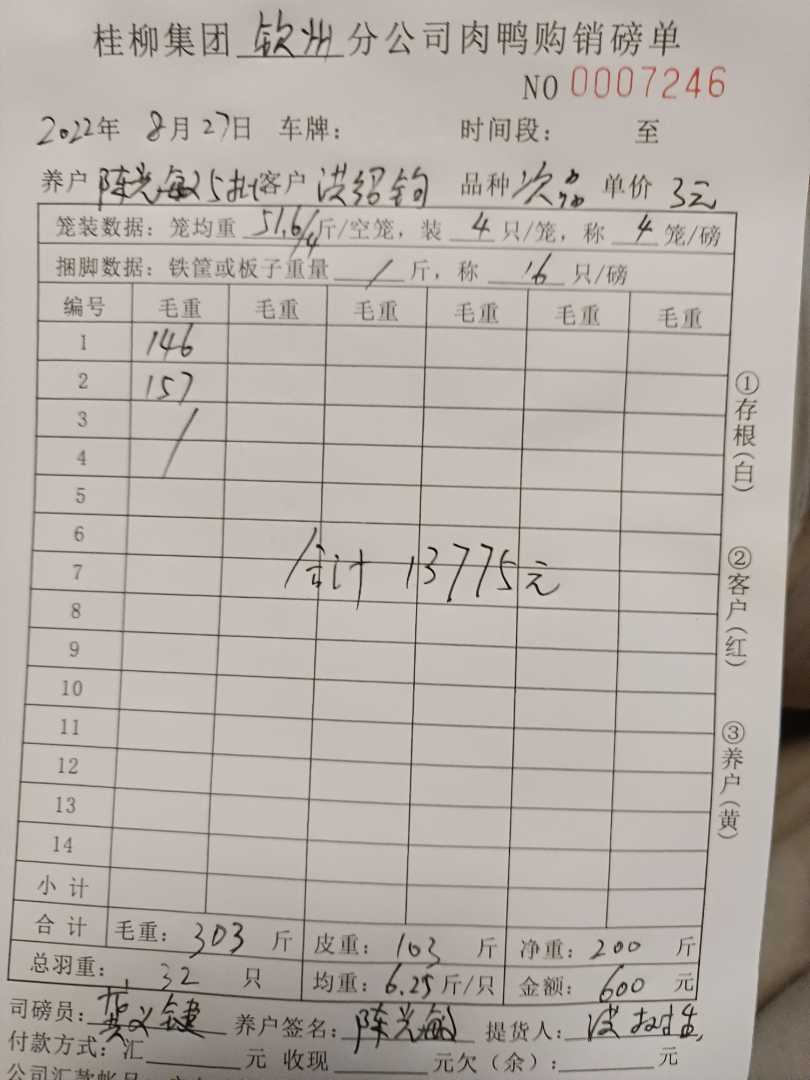 桂柳集团 钦州 分公司肉鸭购销磅单
NO 0007246
2022年 8月27日 车牌: 时间段: 至
养户 陈光敏5批 客户 洪绍钧 品种 次品 单价 3元
笼装数据: 笼均重 51.6/4 斤/空笼, 装 4 只/笼, 称 4 笼/磅
捆脚数据: 铁筐或板子重量 / 斤, 称 16 只/磅
编号 毛重 毛重 毛重 毛重 毛重 毛重
1 146
2 157
3 /
4
5
6
7 合计 13775元
8
9
10
11
12
13
14
小计
合计 毛重: 303 斤 皮重: 103 斤 净重: 200 斤
总羽重: 32 只 均重: 6.25 斤/只 金额: 600 元
司磅员: 黄义键 养户签名: 陈光敏 提货人: 洪
付款方式: 汇 元 收现 元欠(余): 元
公司汇款帐号:
①存根(白)
②客户(红)
③养户(黄)